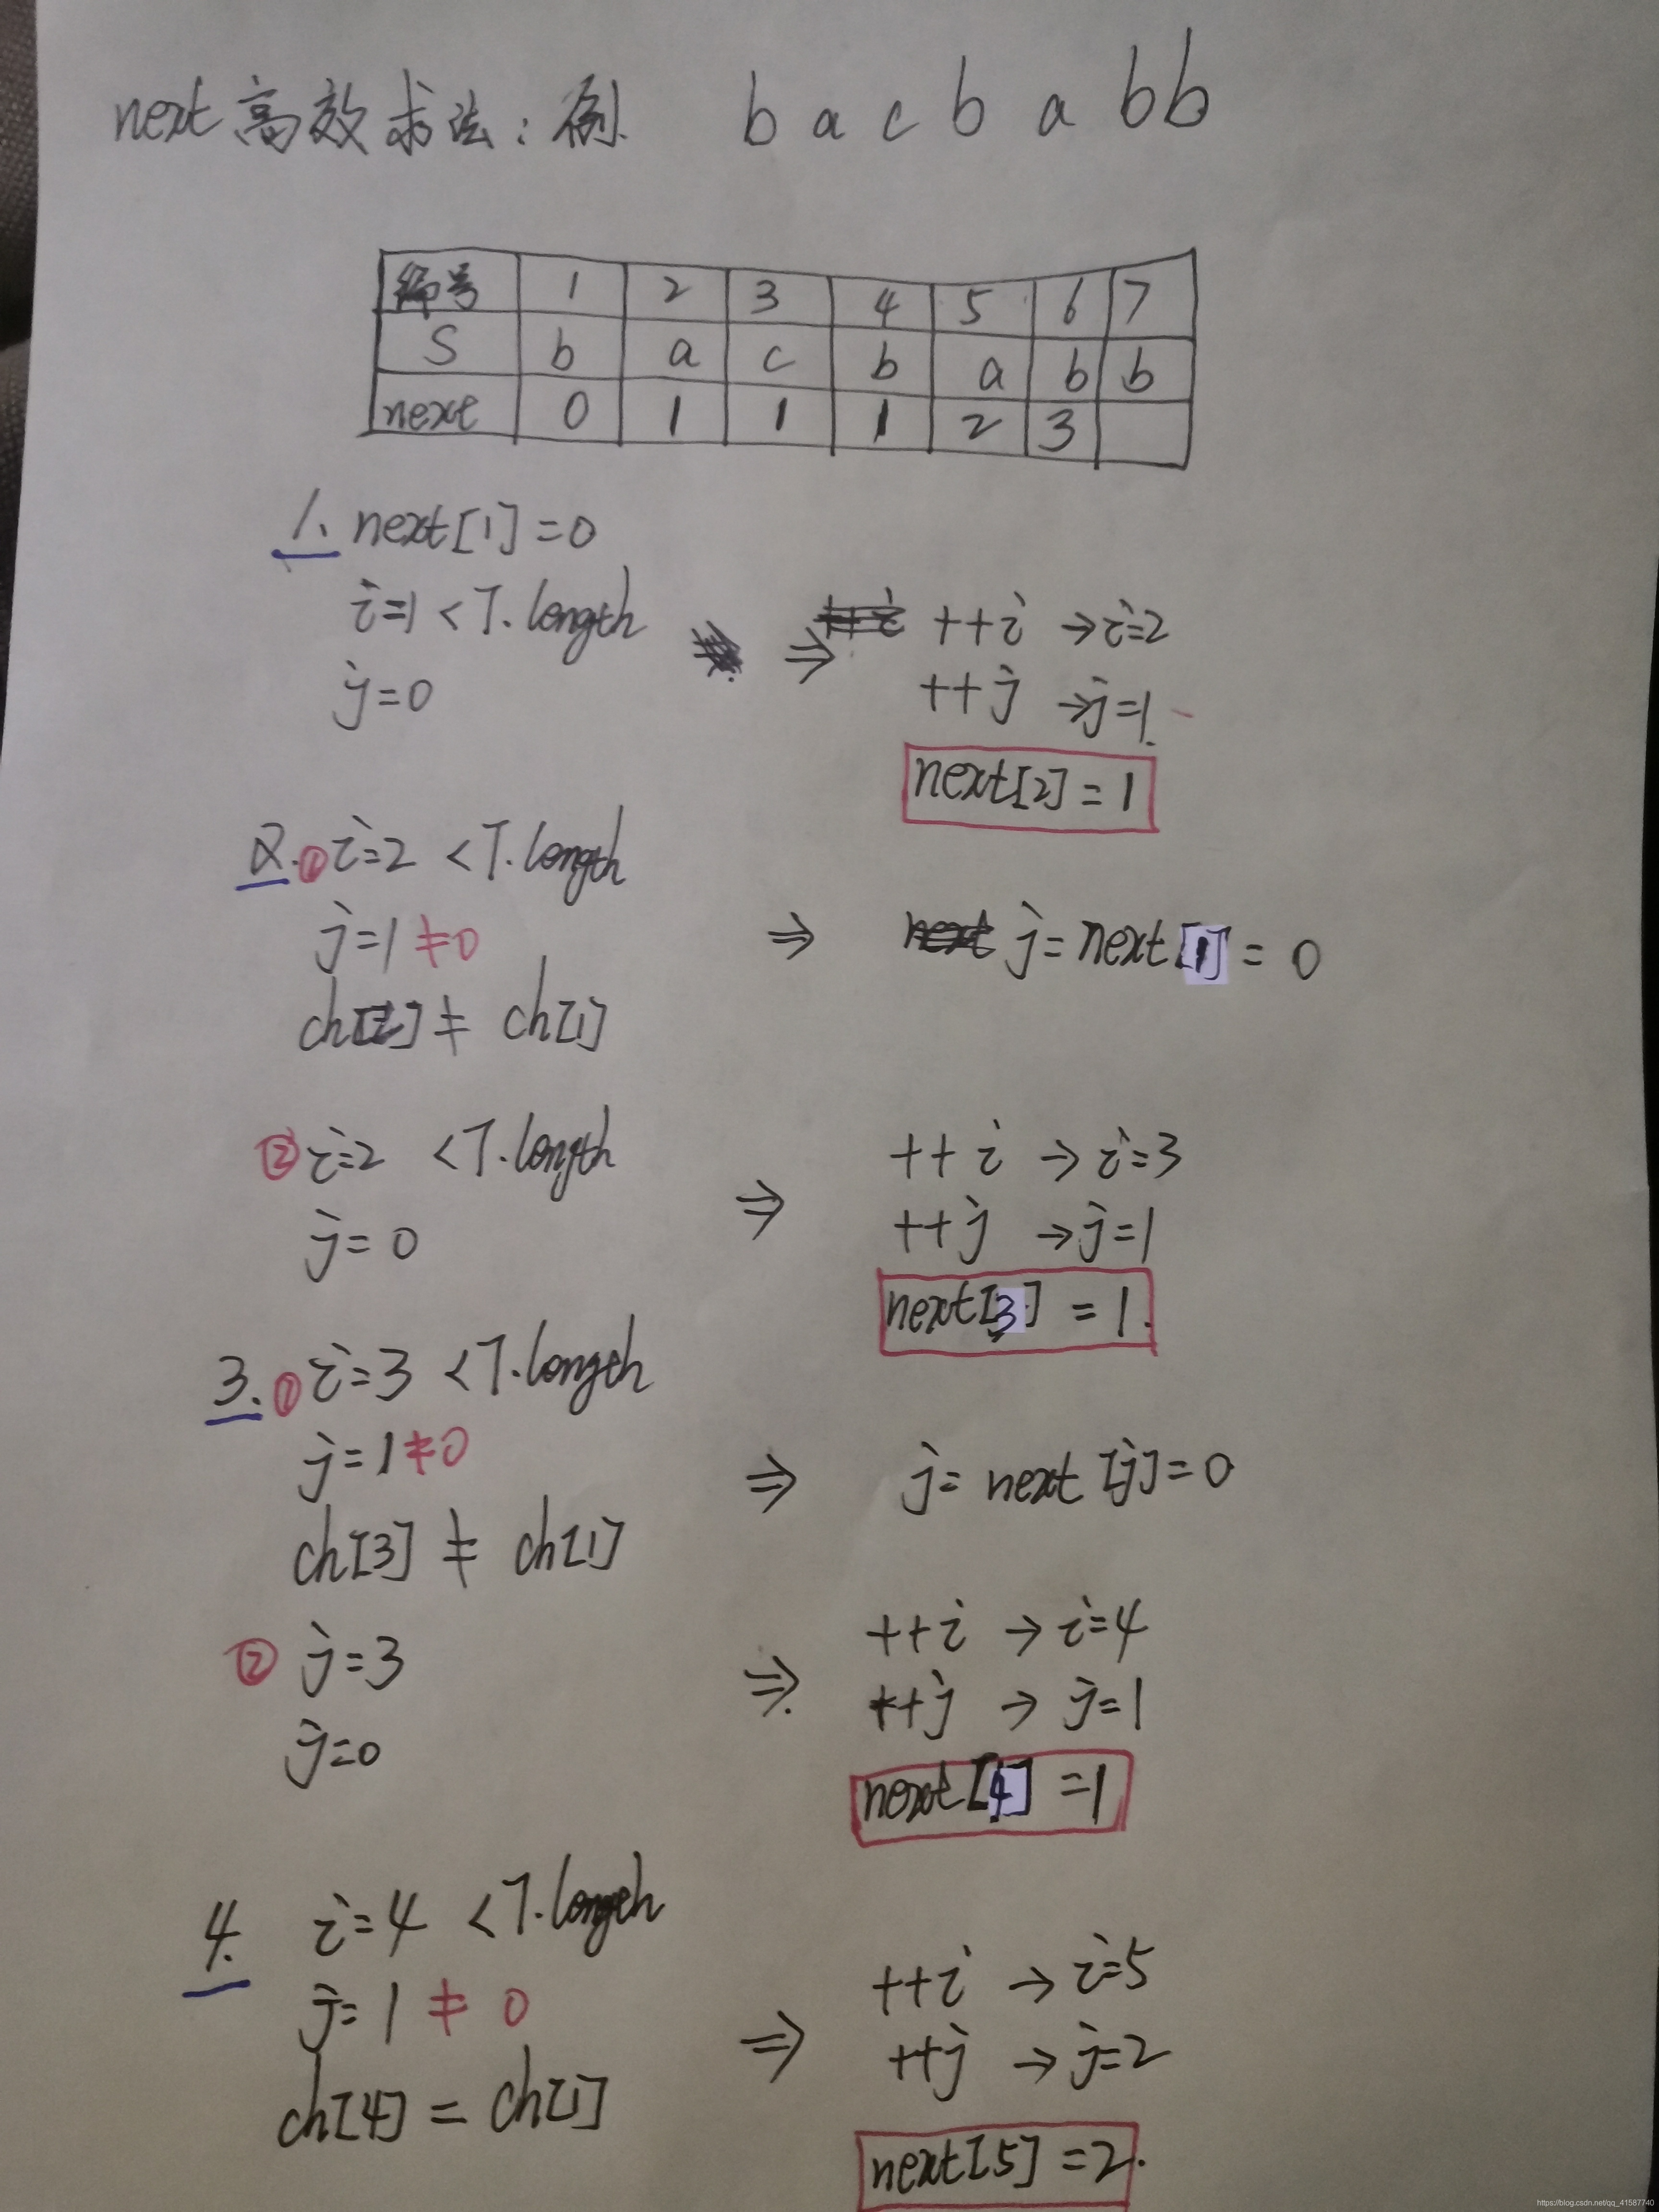 next高效求法：例 b a c b a b b
编号 1 2 3 4 5 6 7
S b a c b a b b
next 0 1 1 1 2 3
1. next[1]=0
i=1<T.length ⇒ ++i →i=2
j=0 ++j →j=1
next[2]=1
2.①i=2 <T.length
j=1≠0 ⇒ j=next[1]=0
ch[2]≠ch[1]
②i=2 <T.length ++i →i=3
j=0 ⇒ ++j →j=1
next[3]=1.
3.①i=3<T.length
j=1≠0 ⇒ j=next[j]=0
ch[3]≠ch[1]
②j=3 ⇒ ++i →i=4
j=0 ++j →j=1
next[4]=1
4. i=4<T.length ++i →i=5
j=1≠0 ⇒ ++j →j=2
ch[4]=ch[1]
next[5]=2.
https://blog.csdn.net/qq_41587740